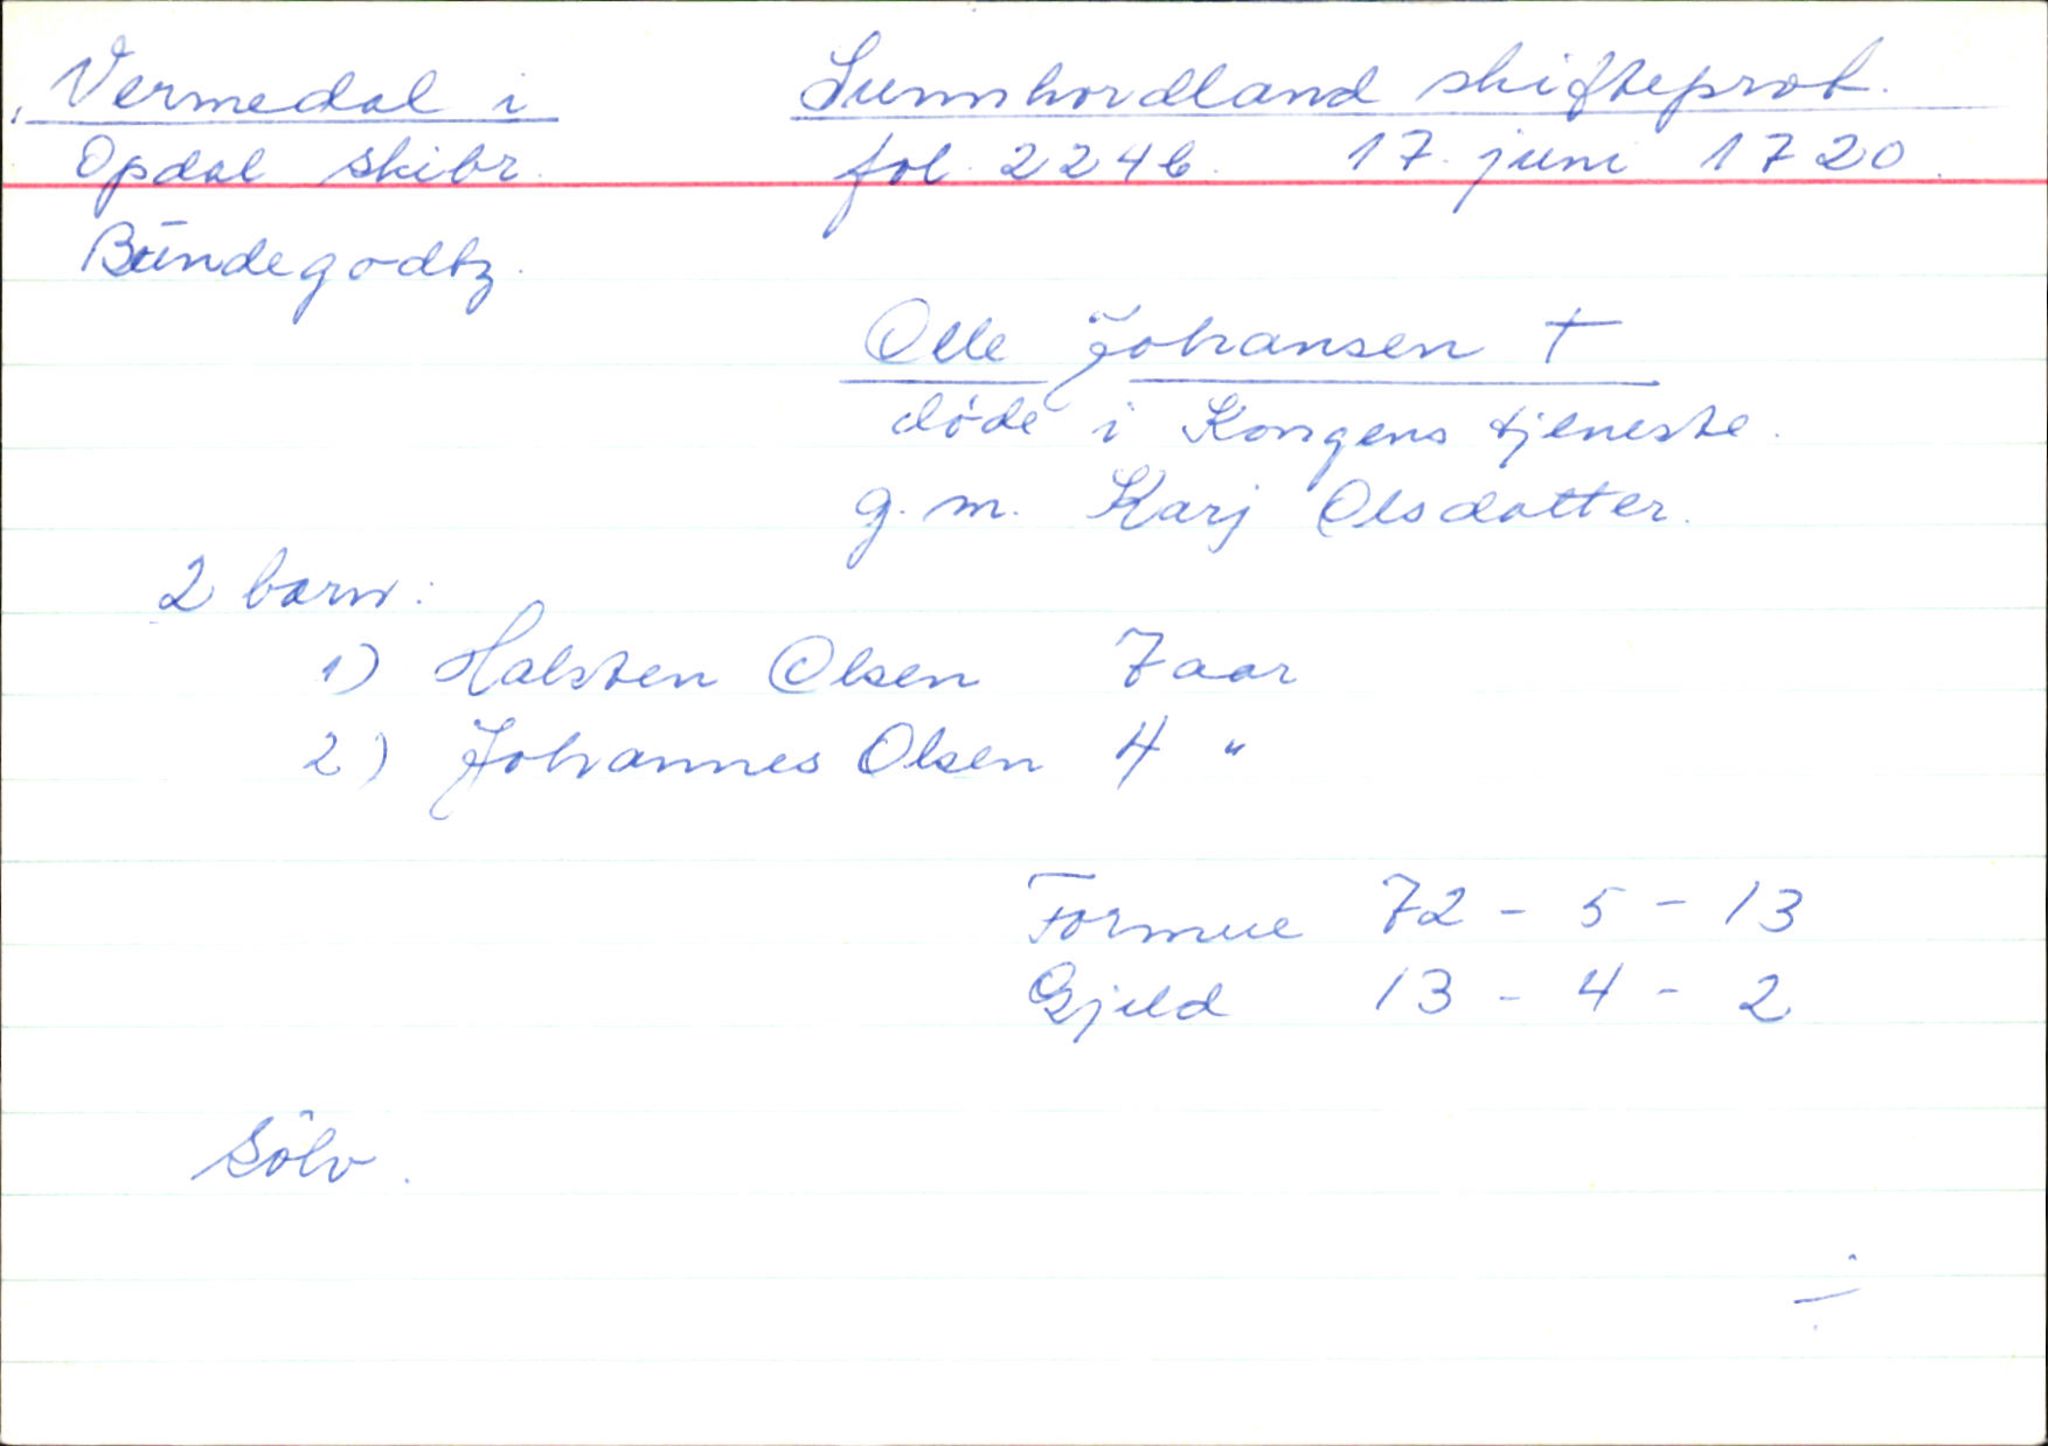 Vermedal i
Opdal skibr.
Sunnhordland skifteprot.
fol. 224b. 17. juni 1720.
Bündegodtz.
Olle Johansen †
døde i Kongens tjeneste.
g. m. Karj Olsdatter.
2 barn:
1) Halsten Olsen 7 aar
2) Johannes Olsen 4 "
Formue 72 - 5 - 13
Gjeld 13 - 4 - 2
Sölv.
÷